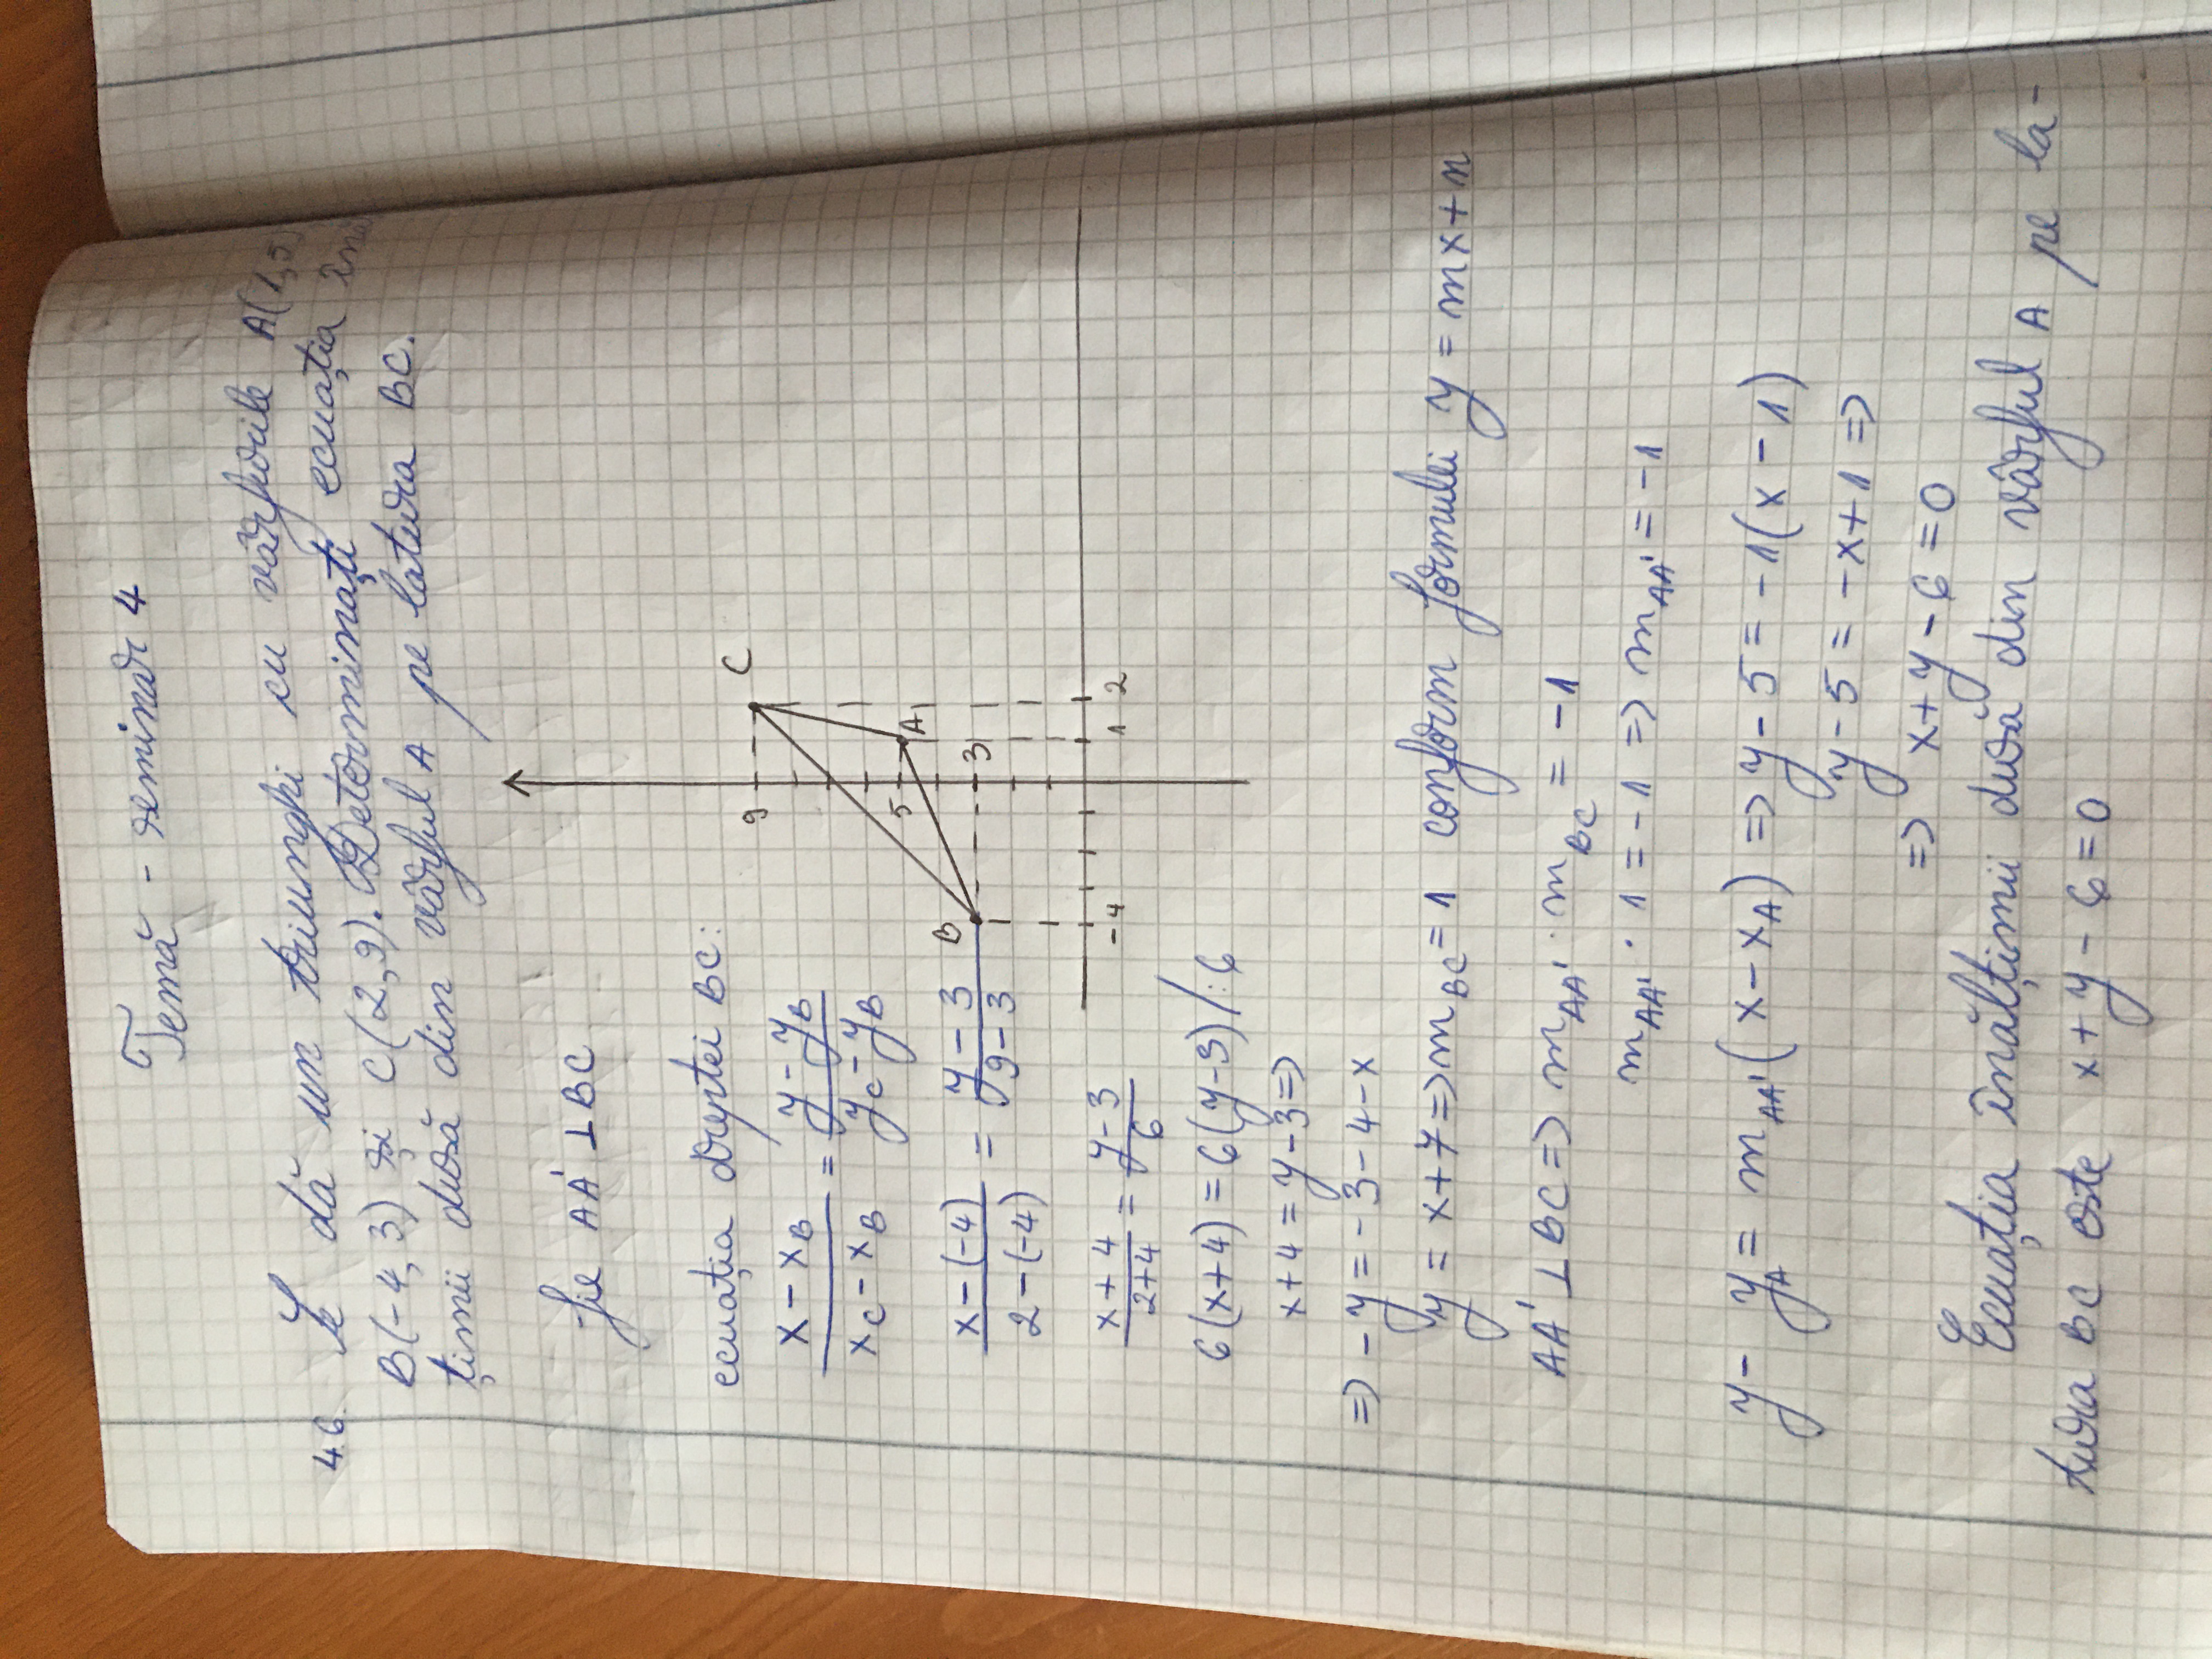 Temă - seminar 4
4.6. Se dă un triunghi cu vârfurile A(1,5)
B(-4,3) și C(2,9). Determinați ecuația înăl
țimii dusă din vârful A pe latura BC.
fie AA' ⊥ BC
ecuația dreptei BC:
(x - x_B)/(x_C - x_B) = (y - y_B)/(y_C - y_B)
(x-(-4))/(2-(-4)) = (y - 3)/(9 - 3)
(x + 4)/(2+4) = (y - 3)/6
6(x+4) = 6(y-3) /:6
x+4 = y-3 =>
=> -y = -3-4-x
y = x+7 => m_BC = 1 conform formulei y = mx+n
AA' ⊥ BC => m_AA' · m_BC = -1
m_AA' · 1 = -1 => m_AA' = -1
y - y_A = m_AA' (x - x_A) => y - 5 = -1(x - 1)
y - 5 = -x+1 =>
=> x+y-6 = 0
Ecuația înălțimii dusă din vârful A pe la-
tura BC este x+y-6=0
9 C
5 A
B 3
-4 1 2